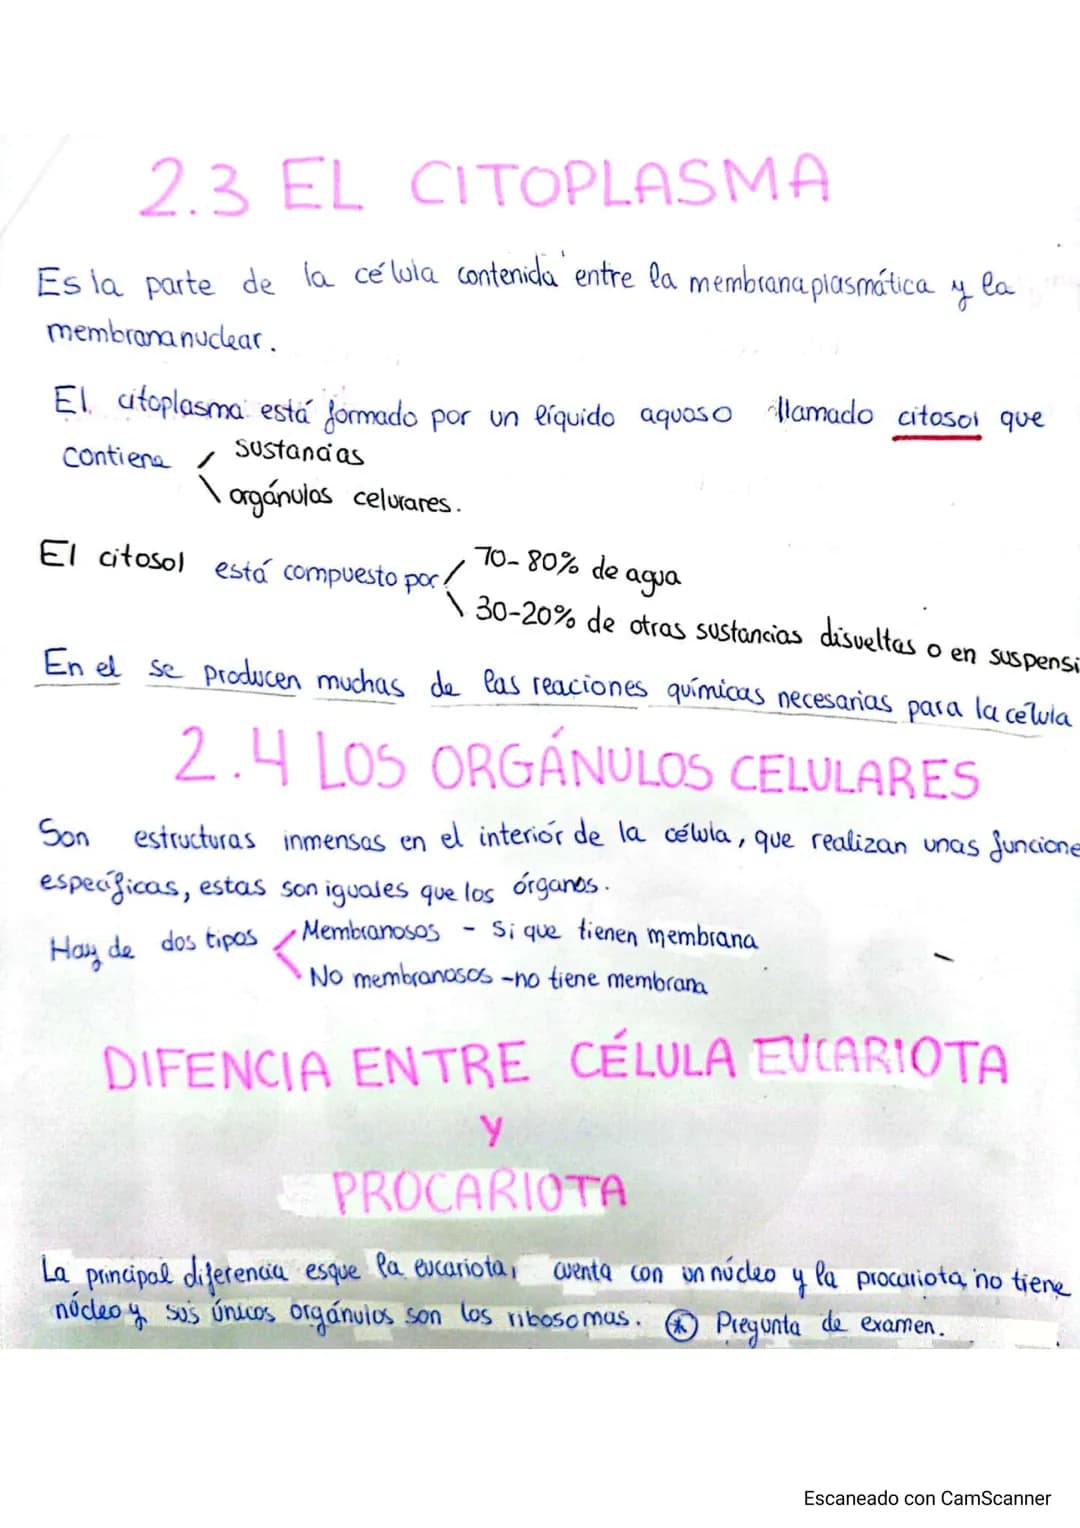 2.3 EL CITOPLASMA
Es la parte de la célula contenida entre la membrana plasmática y la
membrana nuclear.
El citoplasma está formado por un líquido aquoso llamado citosol que
contiene sustancias
orgánulos celulares.
El citosol está compuesto por 70-80% de agua
30-20% de otras sustancias disueltas o en suspensi
En el se producen muchas de las reaciones químicas necesarias para la célula
2.4 LOS ORGÁNULOS CELULARES
Son estructuras inmensas en el interiór de la célula, que realizan unas funcione
específicas, estas son iguales que los órganos.
Hay de dos tipos Membranosos - Si que tienen membrana
No membranosos - no tiene membrana
DIFENCIA ENTRE CÉLULA EUCARIOTA
Y
PROCARIOTA
La principal diferencia es que la eucariota, cuenta con un núcleo y la procariota no tiene
núcleo y sus únicos orgánulos son los ribosomas. * Pregunta de examen.
Escaneado con CamScanner